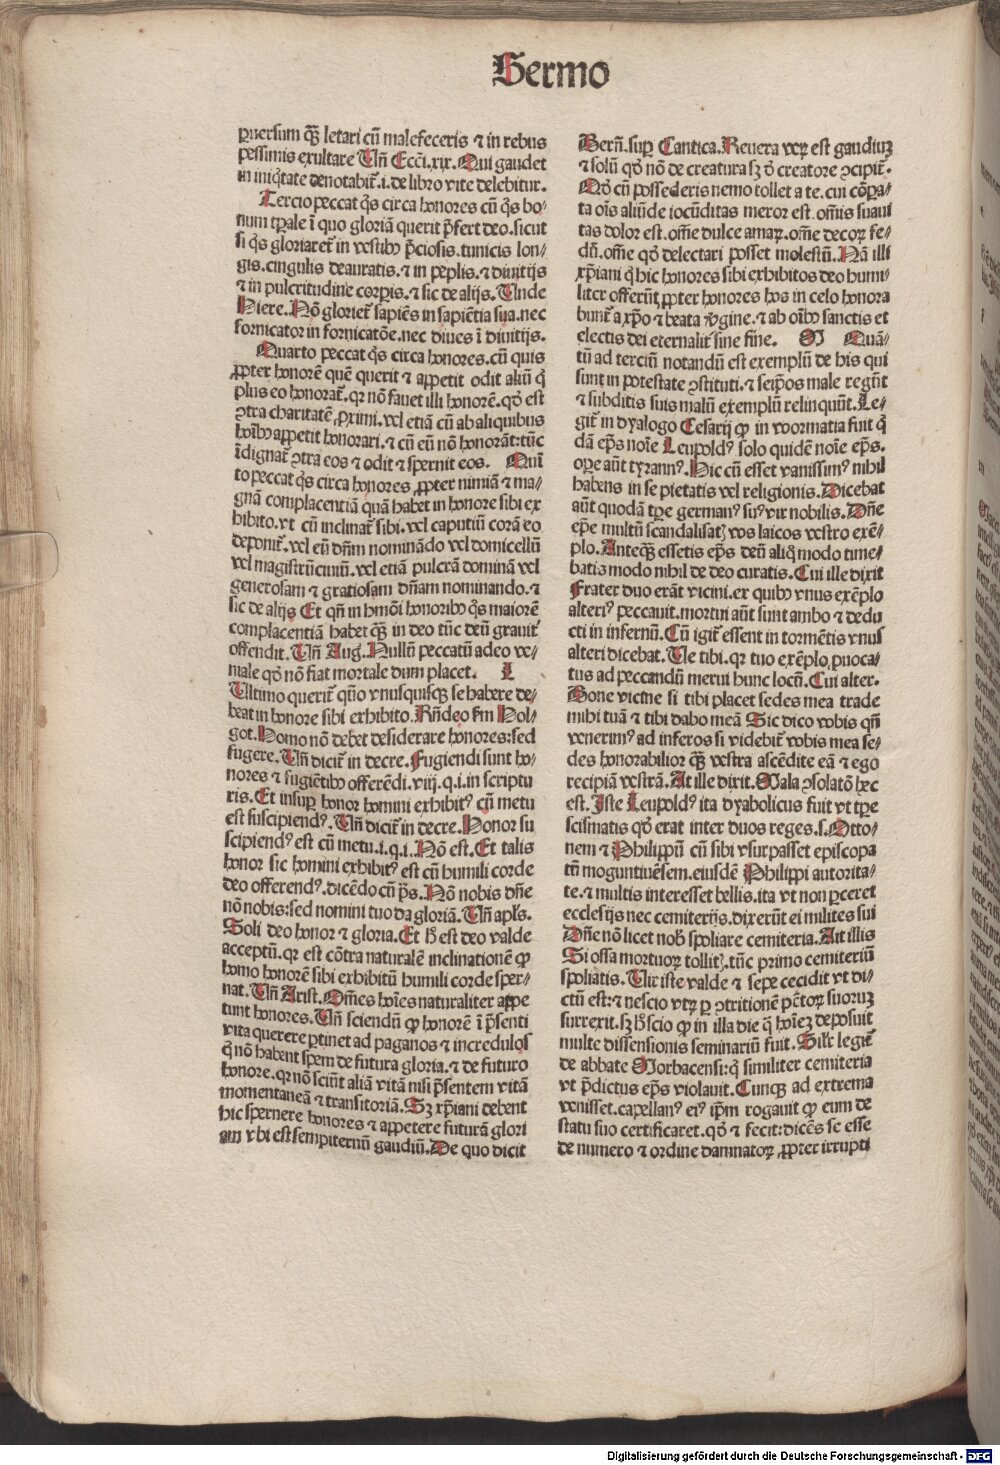 Sermo
ꝑuersum qͣꝫ letari cū malefeceris ⁊ in rebus
pessimis exultare Uñ Ecci.xix.Qui gaudet
in iniqͥtate denotabit̃.i.de libro vite delebitur.
Tercio peccat qͥs circa honores cū qͥs bo⸗
num tꝑale ī quo gloriā querit p̄fert deo.sicut
si qͥs gloriaret̃ in vestibꝫ p̄ciosis.tunicis lon⸗
gis.cingulis deauratis.⁊ in peplis.⁊ diuitijs
⁊ in pulcritudine corꝑis.⁊ sic de alijs.Unde
Hiere.Nō gloriet̃ sapiēs in sapiētia sua.nec
fornicator in fornicatōe.nec diues ī diuitijs.
Quarto peccat qͥs circa honores.cū quis
ꝓpter honorē quē querit ⁊ appetit odit aliū qͥ
plus eo honorat̃.qꝛ nō fauet illi honorē.qd̓ est
ꝯtra charitatē ꝓximi.vel etiā cū ab aliquibus
hoīibꝫ appetit honorari.⁊ cū eū nō honorāt:tūc
īdignat̃ ꝯtra eos ⁊ odit ⁊ spernit eos. Quī
to peccat qͥs circa honores ꝓpter nimiā ⁊ ma⸗
gnā complacentiā quā habet in honore sibi ex
hibito.vt cū inclinat̃ sibi.vel caputiū corā eo
deponit̃.vel eū dn̄m nominādo vel domicellū
vel magistrū ciuiū.vel etiā pulcrā dominā vel
generosam ⁊ gratiosam dn̄am nominando.⁊
sic de alijs Et qn̄ in hmōi honoribꝫ qͥs maiorē
complacentiā habet qͣꝫ in deo tūc deū grauit̃
offendit.Uñ Aug.Nullū peccatū adeo ve⸗
niale qd̓ nō fiat mortale dum placet. L
Ultimo querit̃ quō vnusquisqꝫ se habere de⸗
beat in honore sibi exhibito.Rn̄deo ẜm Hol⸗
got.Homo nō debet desiderare honores:sed
fugere.Uñ dicit̃ in decre.Fugiendi sunt ho⸗
nores ⁊ fugiētibꝫ offerēdi.viij.q.i.in scriptu
ris.Et insuꝑ honor homini exhibitꝰ cū metu
est suscipiendꝰ.Uñ dicit̃ in decre.Honor su
scipiendꝰ est cū metu.i.q.i.Nō est.Et talis
honor sic homini exhibitꝰ est cū humili corde
deo offerendꝰ.dicēdo cū p̄s.Nō nobis dn̄e
nō nobis:sed nomini tuo da gloriā.Uñ apl̓s.
Soli deo honor ⁊ gloria.Et h̓ est deo valde
acceptū.qꝛ est cōtra naturalē inclinationē ꝙ
homo honorē sibi exhibitū humili corde sper⸗
nat.Uñ Arist.Om̄es hoīes naturaliter appe
tunt honores.Uñ sciendū ꝙ honorē ī p̄senti
vita querere ꝑtinet ad paganos ⁊ incredulos
qͥ nō habent spem de futura gloria.⁊ de futuro
honore.qꝛ nō sciūt aliā vitā nisi p̄sentem vitā
momentaneā ⁊ transitoriā.Sꝫ xp̄iani debent
hic spernere honores ⁊ appetere futurā glori
am vbi est sempiternū gaudiū.De quo dicit
Berñ.suꝑ Cantica.Reuera veꝝ est gaudiuꝫ
⁊ solū qd̓ nō de creatura sꝫ d̓ creatore ꝯcipit̃.
Qd̓ cū possederis nemo tollet a te.cui cōꝑa⸗
ta oīs aliūde iocūditas meror est.om̄is suaui
tas dolor est.om̄e dulce amaꝝ.om̄e decoꝝ fe⸗
dū.om̄e qd̓ delectari posset molestū.Nā illi
xp̄iani qͥ hic honores sibi exhibitos deo humi⸗
liter offerūt ꝓpter honores hos in celo honora
bunt̃ a xp̄o ⁊ beata v̓gine.⁊ ab oībꝫ sanctis et
electis dei eternalit̃ sine fine. M Quā⸗
tū ad terciū notandū est exemplū de his qui
sunt in potestate ꝯstituti.⁊ seip̄os male regūt
⁊ subditis suis malū exemplū relinquūt.Le⸗
git̃ in dyalogo Cesarij ꝙ in wormatia fuit qͥ
dā ep̄s noīe Leupoldꝰ solo quidē noīe ep̄s.
oꝑe aūt tyrannꝰ.Hic cū esset vanissimꝰ nihil
habens in se pietatis vel religionis.Dicebat
aūt quodā tꝑe germanꝰ suꝰ vir nobilis.Dn̄e
ep̄e multū scandalisatꝭ vos laicos vestro exē⸗
plo.Anteqͣꝫ essetis ep̄s deū aliqͦ modo time⸗
batis modo nihil de deo curatis.Cui ille dixit
Frater duo erāt vicini.ex quibꝫ vnus exēplo
alteriꝰ peccauit.mortui aūt sunt ambo ⁊ dedu
cti in infernū.Cū igit̃ essent in tormētis vnus
alteri dicebat.Ue tibi.qꝛ tuo exēplo ꝓuoca⸗
tus ad peccandū merui hunc locū.Cui alter.
Bone vicine si tibi placet sedes mea trade
mihi tuā ⁊ tibi dabo meā Sic dico vobis qn̄
venerimꝰ ad inferos si videbit̃ vobis mea se⸗
des honorabilior qͣꝫ vestra ascēdite eā ⁊ ego
recipiā vestrā.At ille dixit.Mala ꝯsolatō hec
est.Iste Leupoldꝰ ita dyabolicus fuit vt tꝑe
scismatis qd̓ erat inter duos reges.s.Otto⸗
nem ⁊ Philippū cū sibi vsurpasset episcopa
tū moguntiuēsem.eiusdē Philippi autorita⸗
te.⁊ multis interesset bellis.ita vt non ꝑceret
ecclesijs nec cemiterijs.dixerūt ei milites sui
Dn̄e nō licet nob̓ spoliare cemiteria.Ait illis
Si ossa mortuoꝝ tollitꝭ.tūc primo cemiteriū
spoliatis.Uir iste valde ⁊ sepe cecidit vt di⸗
ctū est:⁊ nescio vtꝝ ꝑ ꝯtritionē pctōꝝ suoruꝫ
surrexit.sꝫ h̓ scio ꝙ in illa die qͣ hoīeꝫ deposuit
multe dissensionis seminariū fuit.Sil̓r legit̃
de abbate Morbacensi:qͥ similiter cemiteria
vt p̄dictus ep̄s violauit.Cunqꝫ ad extrema
venisset.capellanꝰ eiꝰ ip̄m rogauit ꝙ eum de
statu suo certificaret.qd̓ ⁊ fecit:dicēs se esse
de numero ⁊ ordine damnatoꝝ ꝓpter irrupti
Digitalisierung gefördert durch die Deutsche Forschungsgemeinschaft - DFG